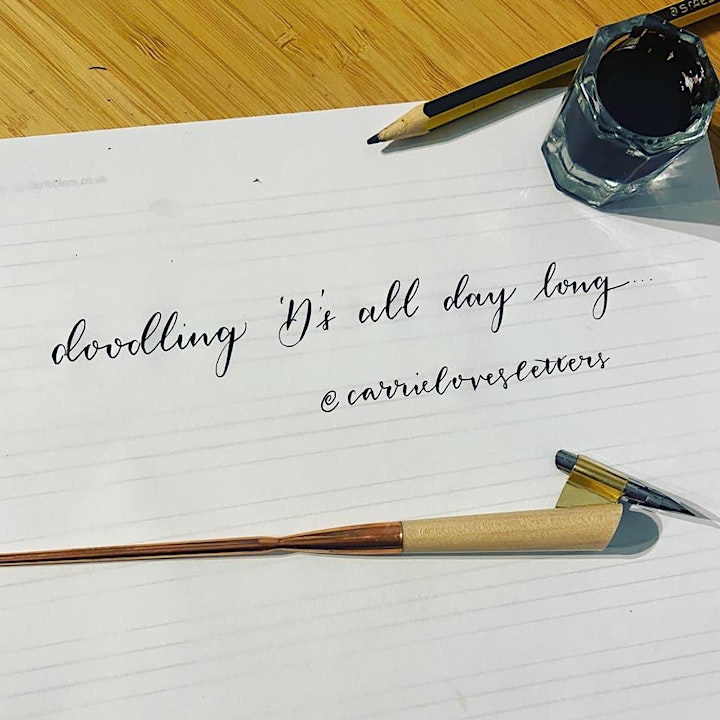 doodling 'D's all day long...
@carrielovesletters